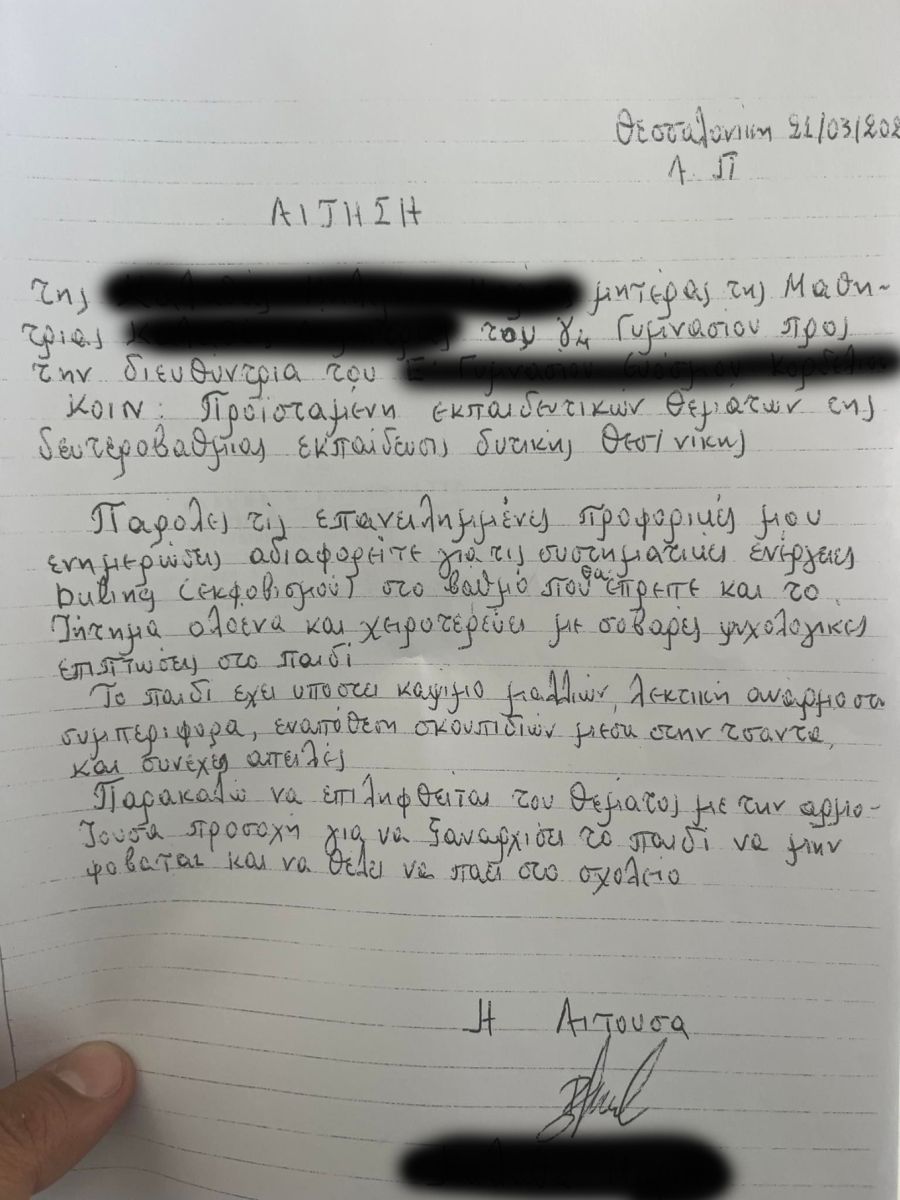 Θεσσαλονίκη 21/03/202
Α. Π
ΑΙΤΗΣΗ
της μητέρας της Μαθη-
τριας του γ4 Γυμνασιου προς
την διευθύντρια του
ΚΟΙΝ: Προϊσταμένη εκπαιδευτικών θεμάτων της
δευτεροβαθμιας εκπαίδευσις δυτικής Θεσ/νικης
Παρολες τις επανειλημμένες προφορικές μου
ενημερώσεις αδιαφορείτε για τις συστηματικές ένέργειες
buling (εκφοβισμού) στο βαθμό που θα έπρεπε και το
ζήτημα ολοένα και χειροτερεύει με σοβαρές ψυχολογικες
επιπτώσεις στο παιδί
Το παιδί εχει υποστει καψιμο μαλλιών, λεκτική ανάρμοστη
συμπεριφορα, εναπόθεση σκουπιδιών μεσα στην τσαντα,
και συνέχες απειλές
Παρακαλώ να επιληφθείται του θέματος με την αρμο-
ζουσα προσοχή για να ξαναρχισει το παιδί να μην
φοβαται και να θελει να παει στο σχολειο
Η Αιτουσα